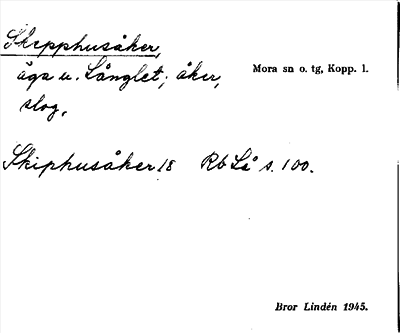 Skepphusåker,
äga u. Långlet; åker,
slog.
Mora sn o. tg, Kopp. l.
Skiphusåker 18 Rb Så s. 100.
Bror Lindén 1945.